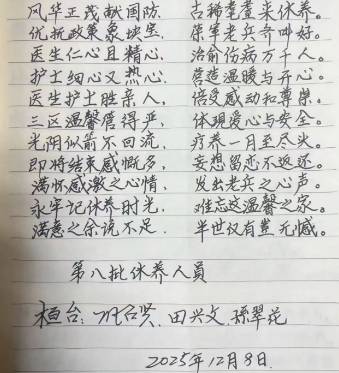 风华正茂献国防. 古稀耄耋来休养。
优抚政策泉块生, 保军老兵齐叫好。
医生仁心且精心, 治俞伤病万千人。
护士细心又热心, 营造温暖与开心。
医生护士胜亲人, 倍受感动和尊崇。
三区温馨管得严, 体现爱心与安全。
光阴似箭不回流, 疗养一月至尽头。
即将结束感慨多, 妄想留恋不返还。
满怀感激之心情, 发出老兵之心声。
永牢记休养时光, 难忘这温馨之家。
满意之余说不足. 半世仅有岂无憾。
第八批休养人员
桓台: 召兴. 田兴文. 孫翠花
2025年12月8日.